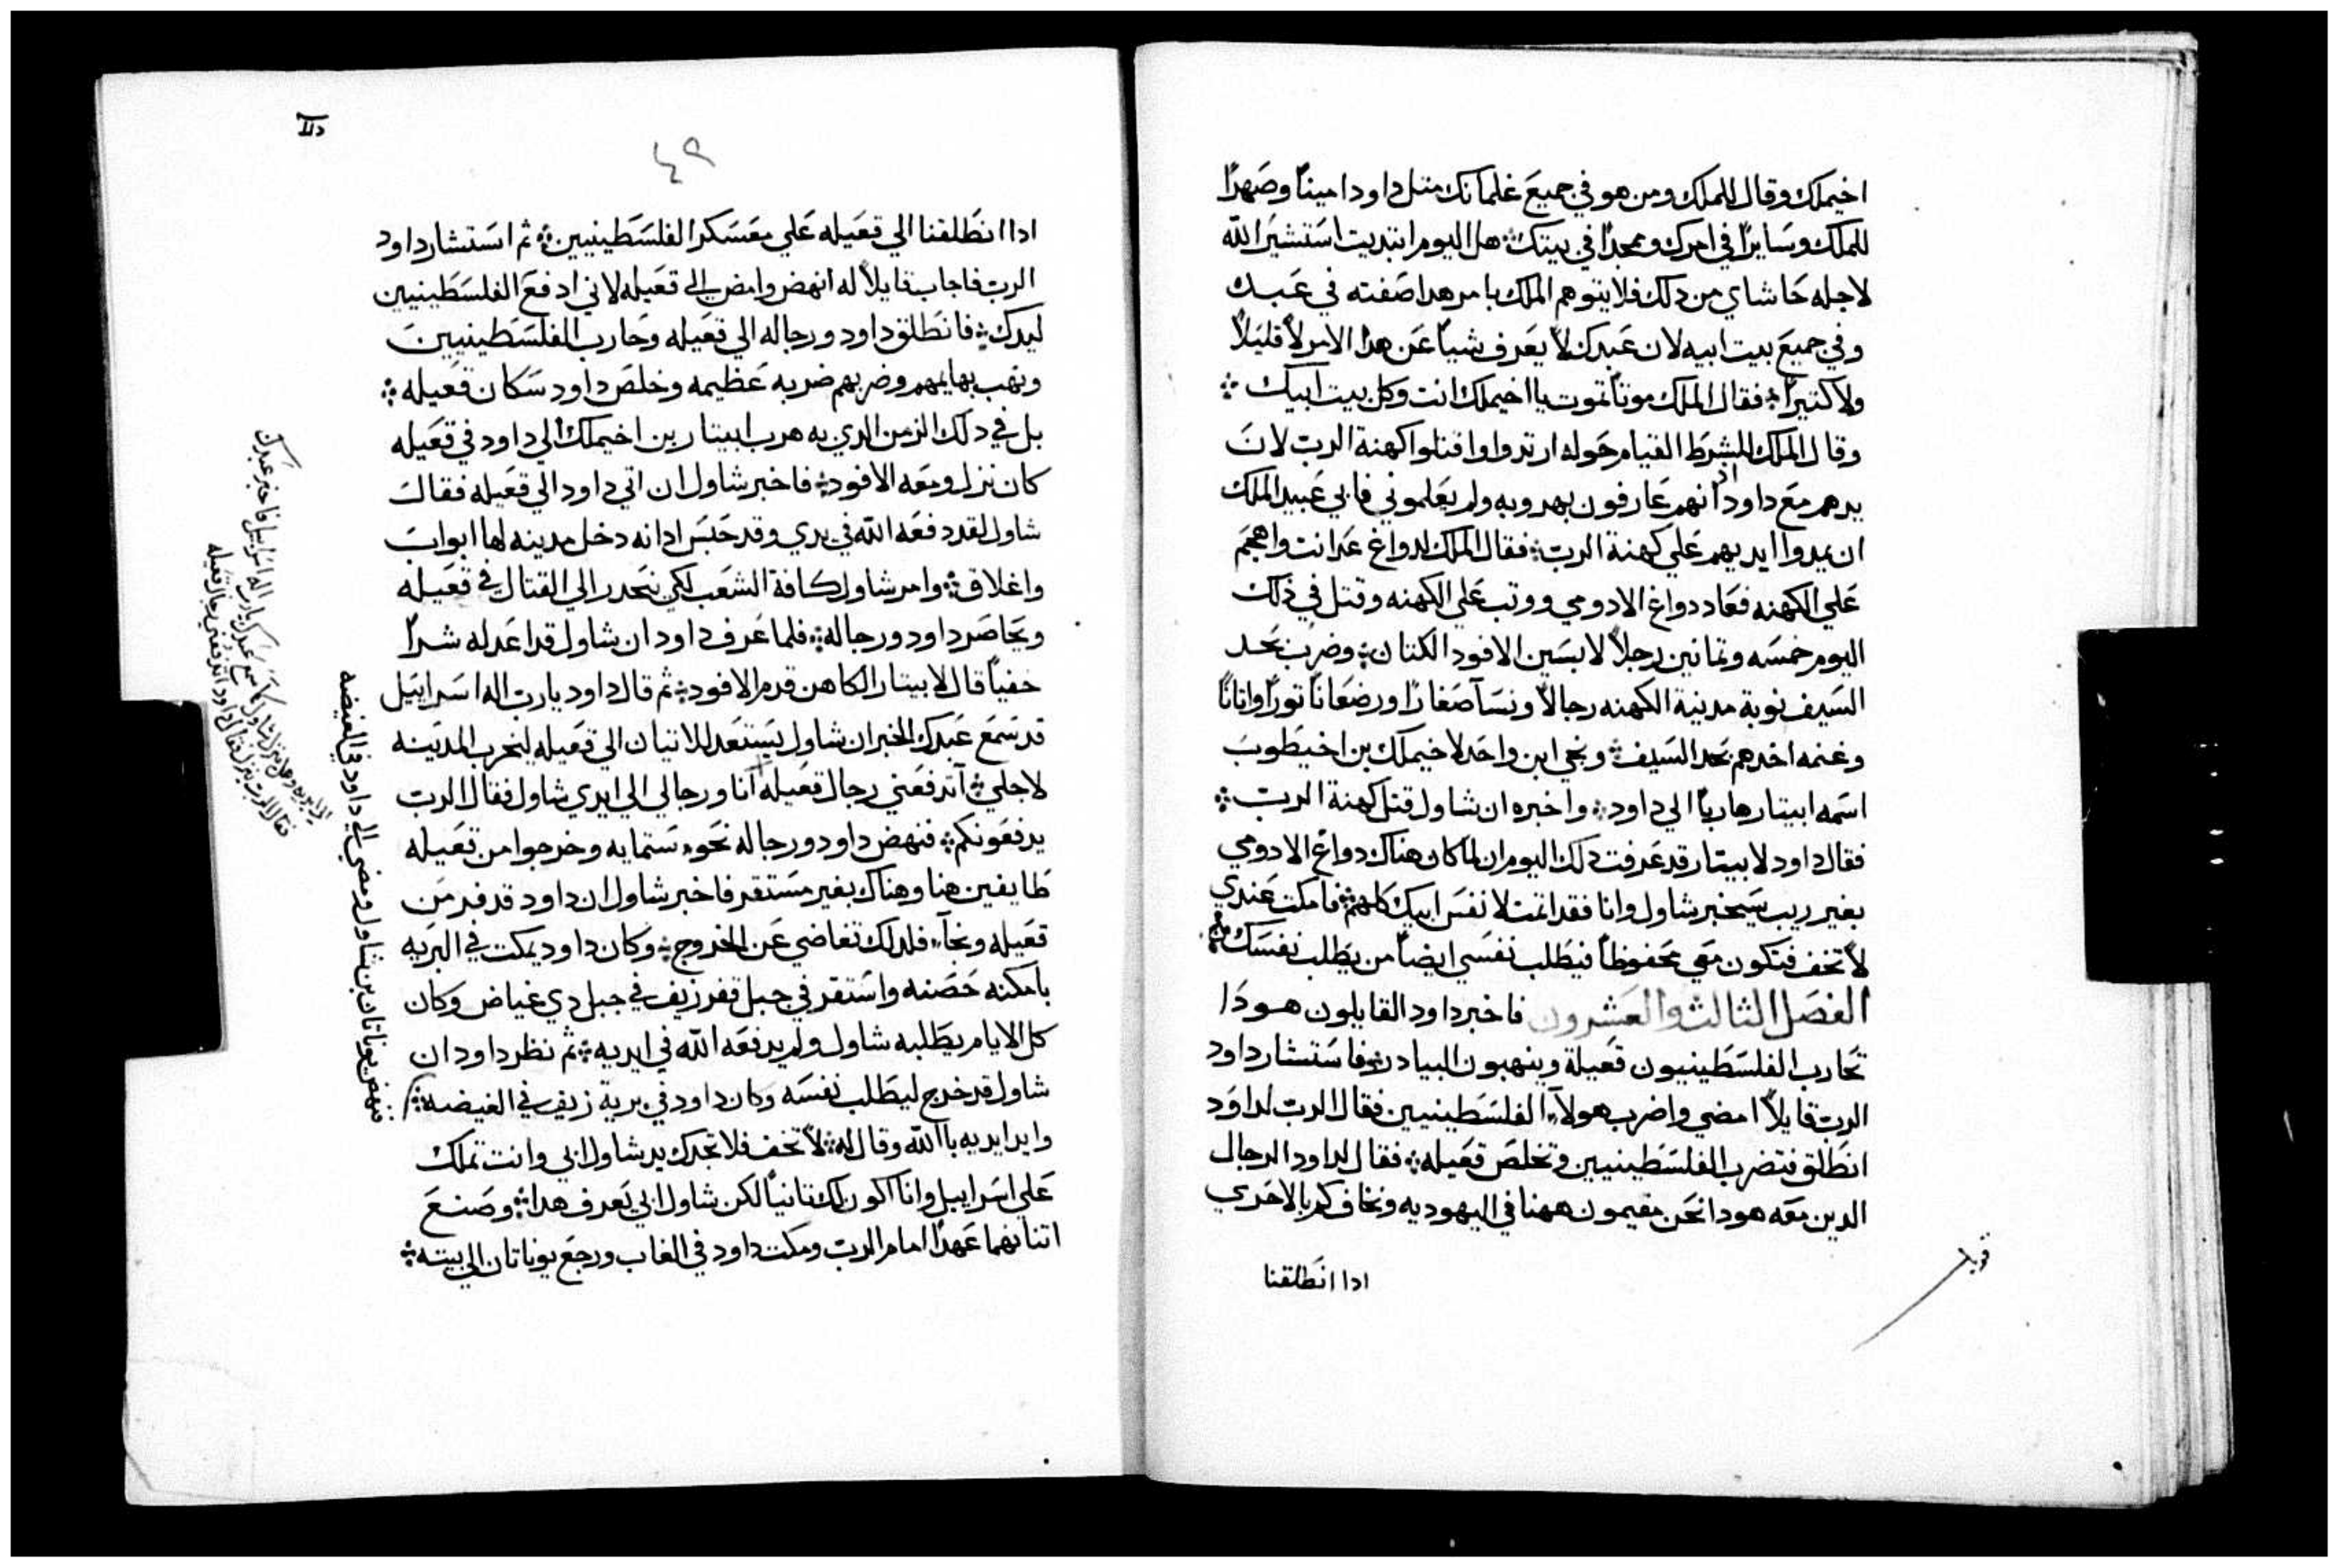 اخيملك وقال للملك ومن هو في جميع غلمانك متل داود امينًا وصهرًا
للملك وسايرًا في امرك وممجدًا في بيتك هل اليوم ابتديت استشير الله
لاجله حاشاي من دلك فلا يتوهم الملك بامر هدا صفته في عبده
وفي جميع بيت ابيه لان عبدك لا يعرف شيًا عن هدا الامر لا قليلًا
ولا كتيرًا فقال الملك موتًا تموت يا اخيملك انت وكل بيت ابيك
وقال الملك للشرط القيام حوله ارتدوا واقتلوا كهنة الرب لان
يدهم مع داود اد انهم عارفون بهروبه ولم يعلموني فابي عبيد الملك
ان يمدوا ايديهم علي كهنة الرب فقال الملك لدواغ عد انت واهجم
علي الكهنه فعاد دواغ الادومي ووتب علي الكهنه وقتل في دلك
اليوم خمسه وتمانين رجلًا لابسين الافود الكتان وضرب بحد
السيف نوبة مدينة الكهنه رجالًا ونسآ صغارًا ورضعانًا تورًا واتانًا
وغنمه اخدهم بحد السيف ونجي ابن واحد لاخيملك بن اخيطوب
اسمه ابيتار هاربًا الي داود واخبره ان شاول قتل كهنة الرب
فقال داود لابيتار قد عرفت دلك اليوم ان لما كان هناك دواغ الادومي
بغير ريب سيخبر شاول وانا فقد اتمت لانفس ابيك كلهم فامكت عندي
لا تخف فتكون معي محفوظًا فيطلب نفسي ايضًا من يطلب نفسك
الفصل الثالث والعشرون فاخبر داود القايلون هودا
تحارب الفلسطينيون قعيلة وينهبون البيادر فاستشار داود
الرب قايلًا امضي واضرب هولآء الفلسطينيين فقال الرب لداود
انطلق فتضرب الفلسطينيين وتخلص قعيله فقال لداود الرجال
الدين معه هودا نحن مقيمون ههنا في اليهوديه ونخاف كم بالاحري
ادا انطلقنا
قوبل
٤٩
ادا انطلقنا الي قعيله علي معسكر الفلسطينيين ثم استشار داود
الرب فاجاب قايلًا له انهض وامض الي قعيله لاني ادفع الفلسطينيين
ليدك فانطلق داود ورجاله الي قعيله وحارب الفلسطينيين
ونهب بهايمهم وضربهم ضربه عظيمه وخلص داود سكان قعيله
بل في دلك الزمن الدي به هرب ابيتار بن اخيملك الي داود في قعيله
كان نزل ومعه الافود فاخبر شاول ان اتي داود الي قعيله فقال
شاول لقد دفعه الله في يدي وقد حبس ادانه دخل مدينه لها ابواب
واغلاق وامر شاول كافة الشعب لكي ننحدر الي القتال في قعيله
ويحاصر داود ورجاله فلما عرف داود ان شاول قد اعد له شرًا
خفيًا قال لابيتار الكاهن قدم الافود ثم قال داود يا رب اله اسراييل
قد سمع عبدك الخبر ان شاول يستعد للاتيان الي قعيله ليخرب المدينه
لاجلي آتدفعني رجال قعيله انا ورجالي الي ايدي شاول فقال الرب
يدفعونكم فنهض داود ورجاله نحو ستمايه وخرجوا من قعيله
طايفين هنا وهناك بغير مستقر فاخبر شاول ان داود قد فر من
قعيله ونجآ فلدلك تغاضي عن الخروج وكان داود يمكت في البريه
بامكنه حصنه واستقر في جبل قفر زيف في جبل دي غياض وكان
كل الايام يطلبه شاول ولم يدفعه الله في ايديه ثم نظر داود ان
شاول قد خرج ليطلب نفسه وكان داود في برية زيف في الغيضه
وايد ايديه باالله وقال له لا تخف فلا تجدك يد شاول ابي وانت تملك
علي اسراييل وانا اكون لك تانيًا لكن شاول ابي يعرف هدا وصنع
اتنانهما عهدًا امام الرب ومكت داود في الغاب ورجع يوناتان الي بيته
فنهض يوناتان بن شاول ومضي الي داود في الغيضه
يا رب اله اسراييل فاخبر عبدك
فقال الرب ينزل فقال داود اتدفعني رجال قعيله